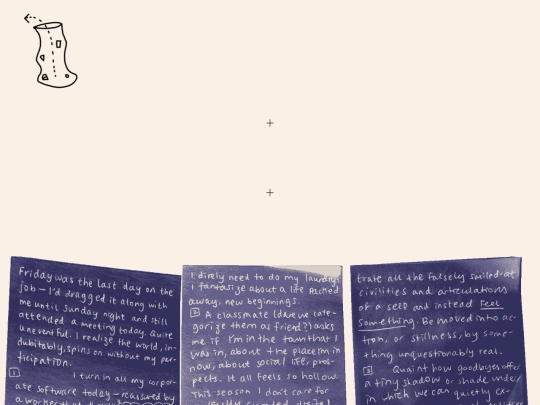 Friday was the last day on the
job — I'd dragged it along with
me until sunday night and still
attended a meeting today. Quite
uneventful. I realize the world, in-
dubitably, spins on without my par-
ticipation.
1 I turn in all my corpor-
ate software today — reassured by
I direly need to do my laundry,
I fantasize about a life packed
away. new beginnings.
2 A classmate (dare we cate-
gorize them as friend?) asks
me if I'm in the town that I
was in, about the place I'm in
now, about social life, pros-
pects. It all feels so hollow.
This season I don't care for
trate all the falsely smiled-at
civilities and articulations
of a self and instead feel
something. Be moved into ac-
tion, or stillness, by some-
thing unquestionably real.
3 Quaint how goodbyes offer
a tiny shadow or shade under/
in which we can quietly ex-